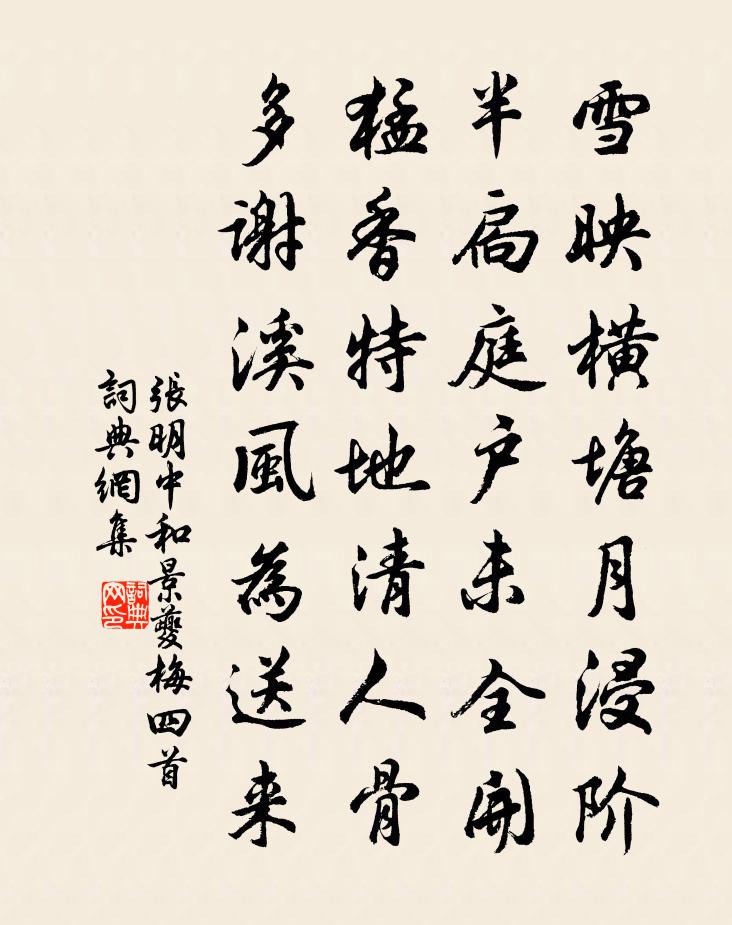 雪映橫塘月浸阶
半扃庭户未全開
猛香特地清人骨
多謝溪風為送来
張明中和景夔梅四首
詞典網集
詞典网印